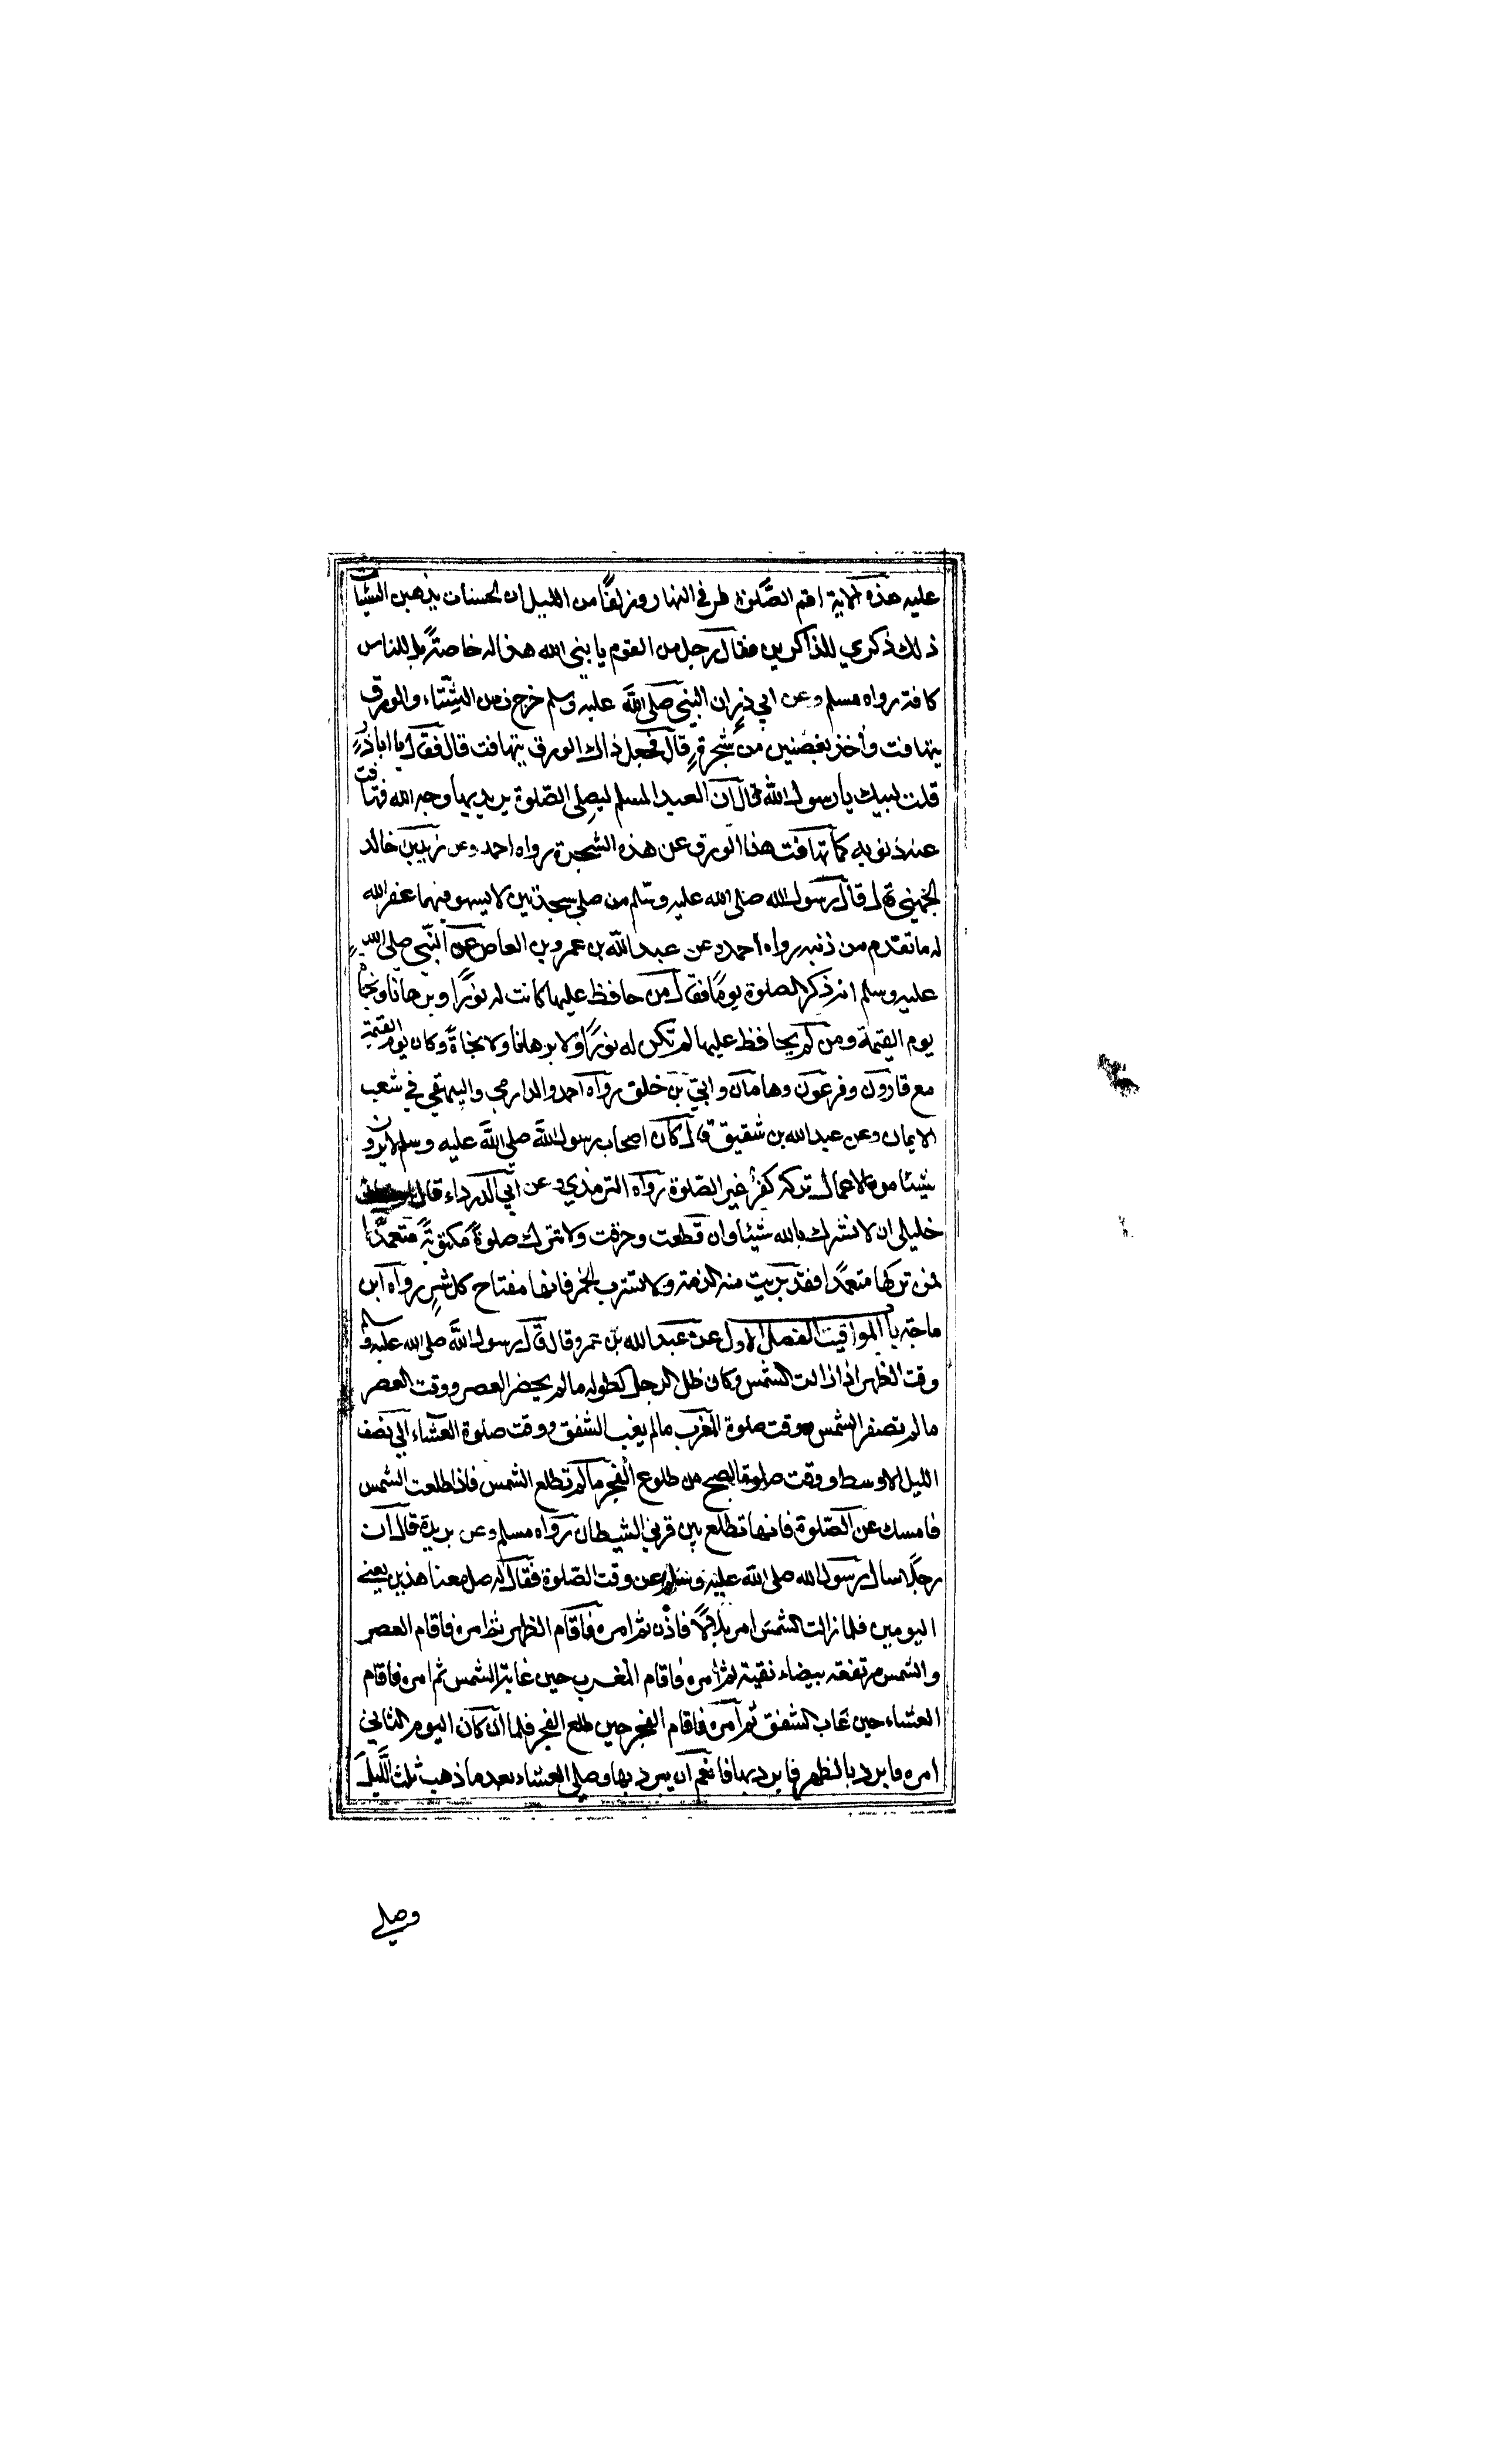 عليه هذه الاية اقم الصلوة طرفي النهار وزلفا من الليل ان الحسنات يذهبن السيئات
ذلك ذكري للذاكرين فقال رجل من القوم يا نبي الله هذا له خاصة بل للناس
كافة رواه مسلم وعن ابي ذر ان النبي صلى الله عليه وسلم خرج زمن الشتاء والورق
يتهافت وأخذ بغصنين من شجرة قال فجعل ذاك الورق يتهافت قال فقال يا اباذر
قلت لبيك يا رسول الله قال ان العبد المسلم ليصلي الصلوة يريد بها وجه الله فتهافت
عنه ذنوبه كما تهافت هذا الورق عن هذه الشجرة رواه احمد وعن زيد بن خالد
الجهني قال قال رسول الله صلى الله عليه وسلم من صلى سجدتين لا يسهو فيهما غفر الله
له ما تقدم من ذنبه رواه احمد وعن عبد الله بن عمرو بن العاص عن النبي صلى الله
عليه وسلم انه ذكر الصلوة يوما فقال من حافظ عليها كانت له نورا وبرهانا ونجاة
يوم القيمة ومن لم يحافظ عليها لم تكن له نورا ولا برهانا ولا نجاة وكان يوم القيمة
مع قارون وفرعون وهامان وابي بن خلف رواه احمد والدارمي والبيهقي في شعب
الايمان وعن عبد الله بن شقيق قال كان اصحاب رسول الله صلى الله عليه وسلم لا يرون
شيئا من الاعمال تركه كفر غير الصلوة رواه الترمذي وعن ابي الدرداء قال
خليلي ان لا تشرك بالله شيئا وان قطعت وحرقت ولا تترك صلوة مكتوبة متعمدا
فمن تركها متعمدا فقد بريت منه الذمة ولا تشرب الخمر فانها مفتاح كل شر رواه ابن
ماجة باب المواقيت الفصل الاول عن عبد الله بن عمرو قال قال رسول الله صلى الله عليه وسلم
وقت الظهر اذا زالت الشمس وكان ظل الرجل كطوله ما لم يحضر العصر ووقت العصر
ما لم تصفر الشمس ووقت صلوة المغرب ما لم يغب الشفق ووقت صلوة العشاء الي نصف
الليل الاوسط ووقت صلوة الصبح من طلوع الفجر ما لم تطلع الشمس فاذا طلعت الشمس
فامسك عن الصلوة فانها تطلع بين قرني الشيطان رواه مسلم وعن بريدة قال ان
رجلا سال رسول الله صلى الله عليه وسلم عن وقت الصلوة فقال له صل معنا هذين يعني
اليومين فلما زالت الشمس امر بلالا فاذن ثم امره فاقام الظهر ثم امره فاقام العصر
والشمس مرتفعة بيضاء نقية ثم امره فاقام المغرب حين غابت الشمس ثم امره فاقام
العشاء حين غاب الشفق ثم امره فاقام الفجر حين طلع الفجر فلما ان كان اليوم الثاني
امره فابرد بالظهر فابرد بها فانعم ان يبرد بها وصلى العشاء بعد ما ذهب ثلث الليل
وصلى